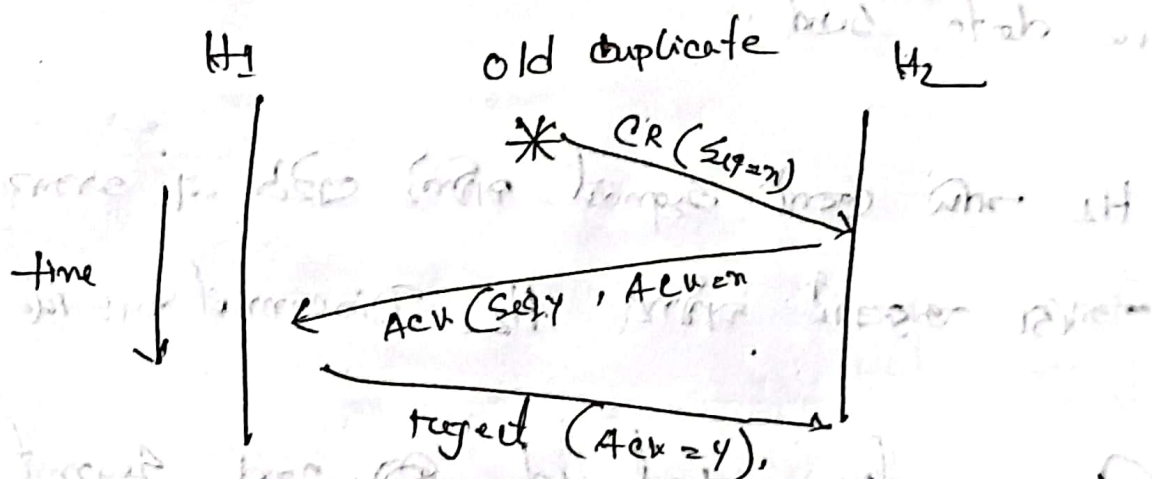 H1 old duplicate H2
CR (Seq=x)
time
ACK (Seq=y, ACK=x
reject (ACK = y).